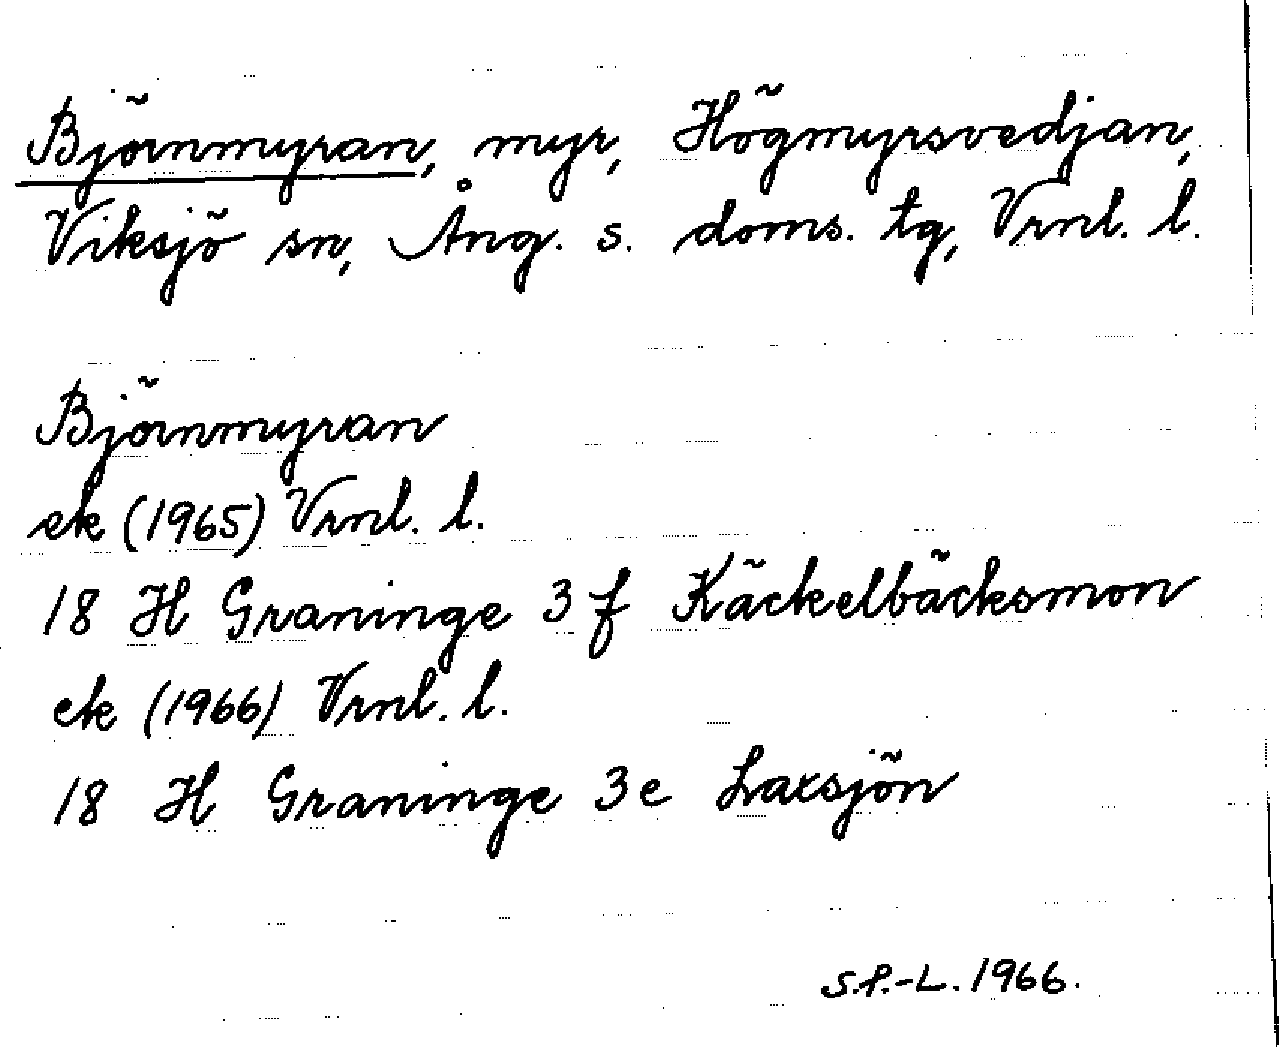 Björnmyran, myr, Högmyrsvedjan,
Viksjö sn, Ång. s. doms. tg, Vrnl. l.
Björnmyran
ek (1965) Vrnl. l.
18 H Graninge 3 f Käckelbäcksmon
ek (1966) Vrnl. l.
18 H Graninge 3 e Laxsjön
S.P.-L. 1966.